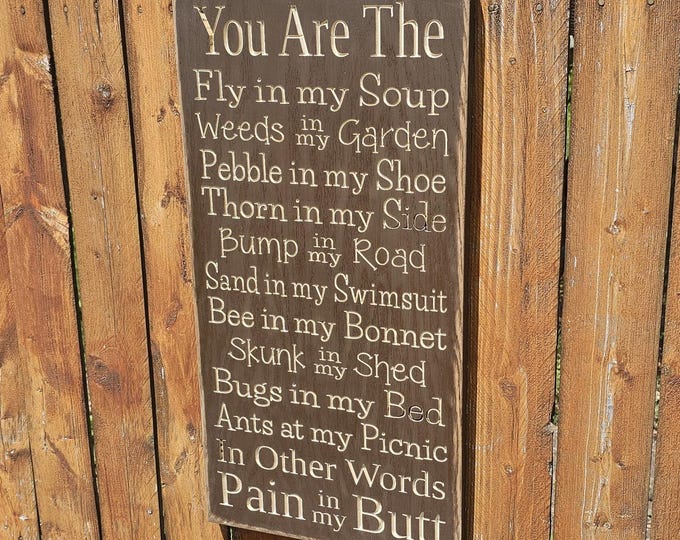 You Are The
Fly in my Soup
Weeds in my Garden
Pebble in my Shoe
Thorn in my Side
Bump in my Road
Sand in my Swimsuit
Bee in my Bonnet
Skunk in my Shed
Bugs in my Bed
Ants at my Picnic
In Other Words
Pain in my Butt